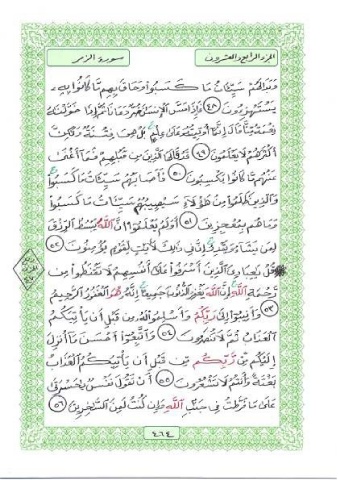 الجزء الرابع والعشرون
سورة الزمر
وَبَدَا لَهُمْ سَيِّـَٔاتُ مَا كَسَبُوا۟ وَحَاقَ بِهِم مَّا كَانُوا۟ بِهِۦ
يَسْتَهْزِءُونَ ٤٨ فَإِذَا مَسَّ ٱلْإِنسَـٰنَ ضُرٌّ دَعَانَا ثُمَّ إِذَا خَوَّلْنَـٰهُ
نِعْمَةً مِّنَّا قَالَ إِنَّمَآ أُوتِيتُهُۥ عَلَىٰ عِلْمٍۭ ۚ بَلْ هِىَ فِتْنَةٌ وَلَـٰكِنَّ
أَكْثَرَهُمْ لَا يَعْلَمُونَ ٤٩ قَدْ قَالَهَا ٱلَّذِينَ مِن قَبْلِهِمْ فَمَآ أَغْنَىٰ
عَنْهُم مَّا كَانُوا۟ يَكْسِبُونَ ٥٠ فَأَصَابَهُمْ سَيِّـَٔاتُ مَا كَسَبُوا۟ ۚ
وَٱلَّذِينَ ظَلَمُوا۟ مِنْ هَـٰٓؤُلَآءِ سَيُصِيبُهُمْ سَيِّـَٔاتُ مَا كَسَبُوا۟
وَمَا هُم بِمُعْجِزِينَ ٥١ أَوَلَمْ يَعْلَمُوٓا۟ أَنَّ ٱللَّهَ يَبْسُطُ ٱلرِّزْقَ
لِمَن يَشَآءُ وَيَقْدِرُ ۚ إِنَّ فِى ذَٰلِكَ لَـَٔايَـٰتٍ لِّقَوْمٍ يُؤْمِنُونَ ٥٢
۞ قُلْ يَـٰعِبَادِىَ ٱلَّذِينَ أَسْرَفُوا۟ عَلَىٰٓ أَنفُسِهِمْ لَا تَقْنَطُوا۟ مِن
رَّحْمَةِ ٱللَّهِ ۚ إِنَّ ٱللَّهَ يَغْفِرُ ٱلذُّنُوبَ جَمِيعًا ۚ إِنَّهُۥ هُوَ ٱلْغَفُورُ ٱلرَّحِيمُ
٥٣ وَأَنِيبُوٓا۟ إِلَىٰ رَبِّكُمْ وَأَسْلِمُوا۟ لَهُۥ مِن قَبْلِ أَن يَأْتِيَكُمُ
ٱلْعَذَابُ ثُمَّ لَا تُنصَرُونَ ٥٤ وَٱتَّبِعُوٓا۟ أَحْسَنَ مَآ أُنزِلَ
إِلَيْكُم مِّن رَّبِّكُم مِّن قَبْلِ أَن يَأْتِيَكُمُ ٱلْعَذَابُ
بَغْتَةً وَأَنتُمْ لَا تَشْعُرُونَ ٥٥ أَن تَقُولَ نَفْسٌ يَـٰحَسْرَتَىٰ
عَلَىٰ مَا فَرَّطتُ فِى جَنۢبِ ٱللَّهِ وَإِن كُنتُ لَمِنَ ٱلسَّـٰخِرِينَ ٥٦
٤٦٤